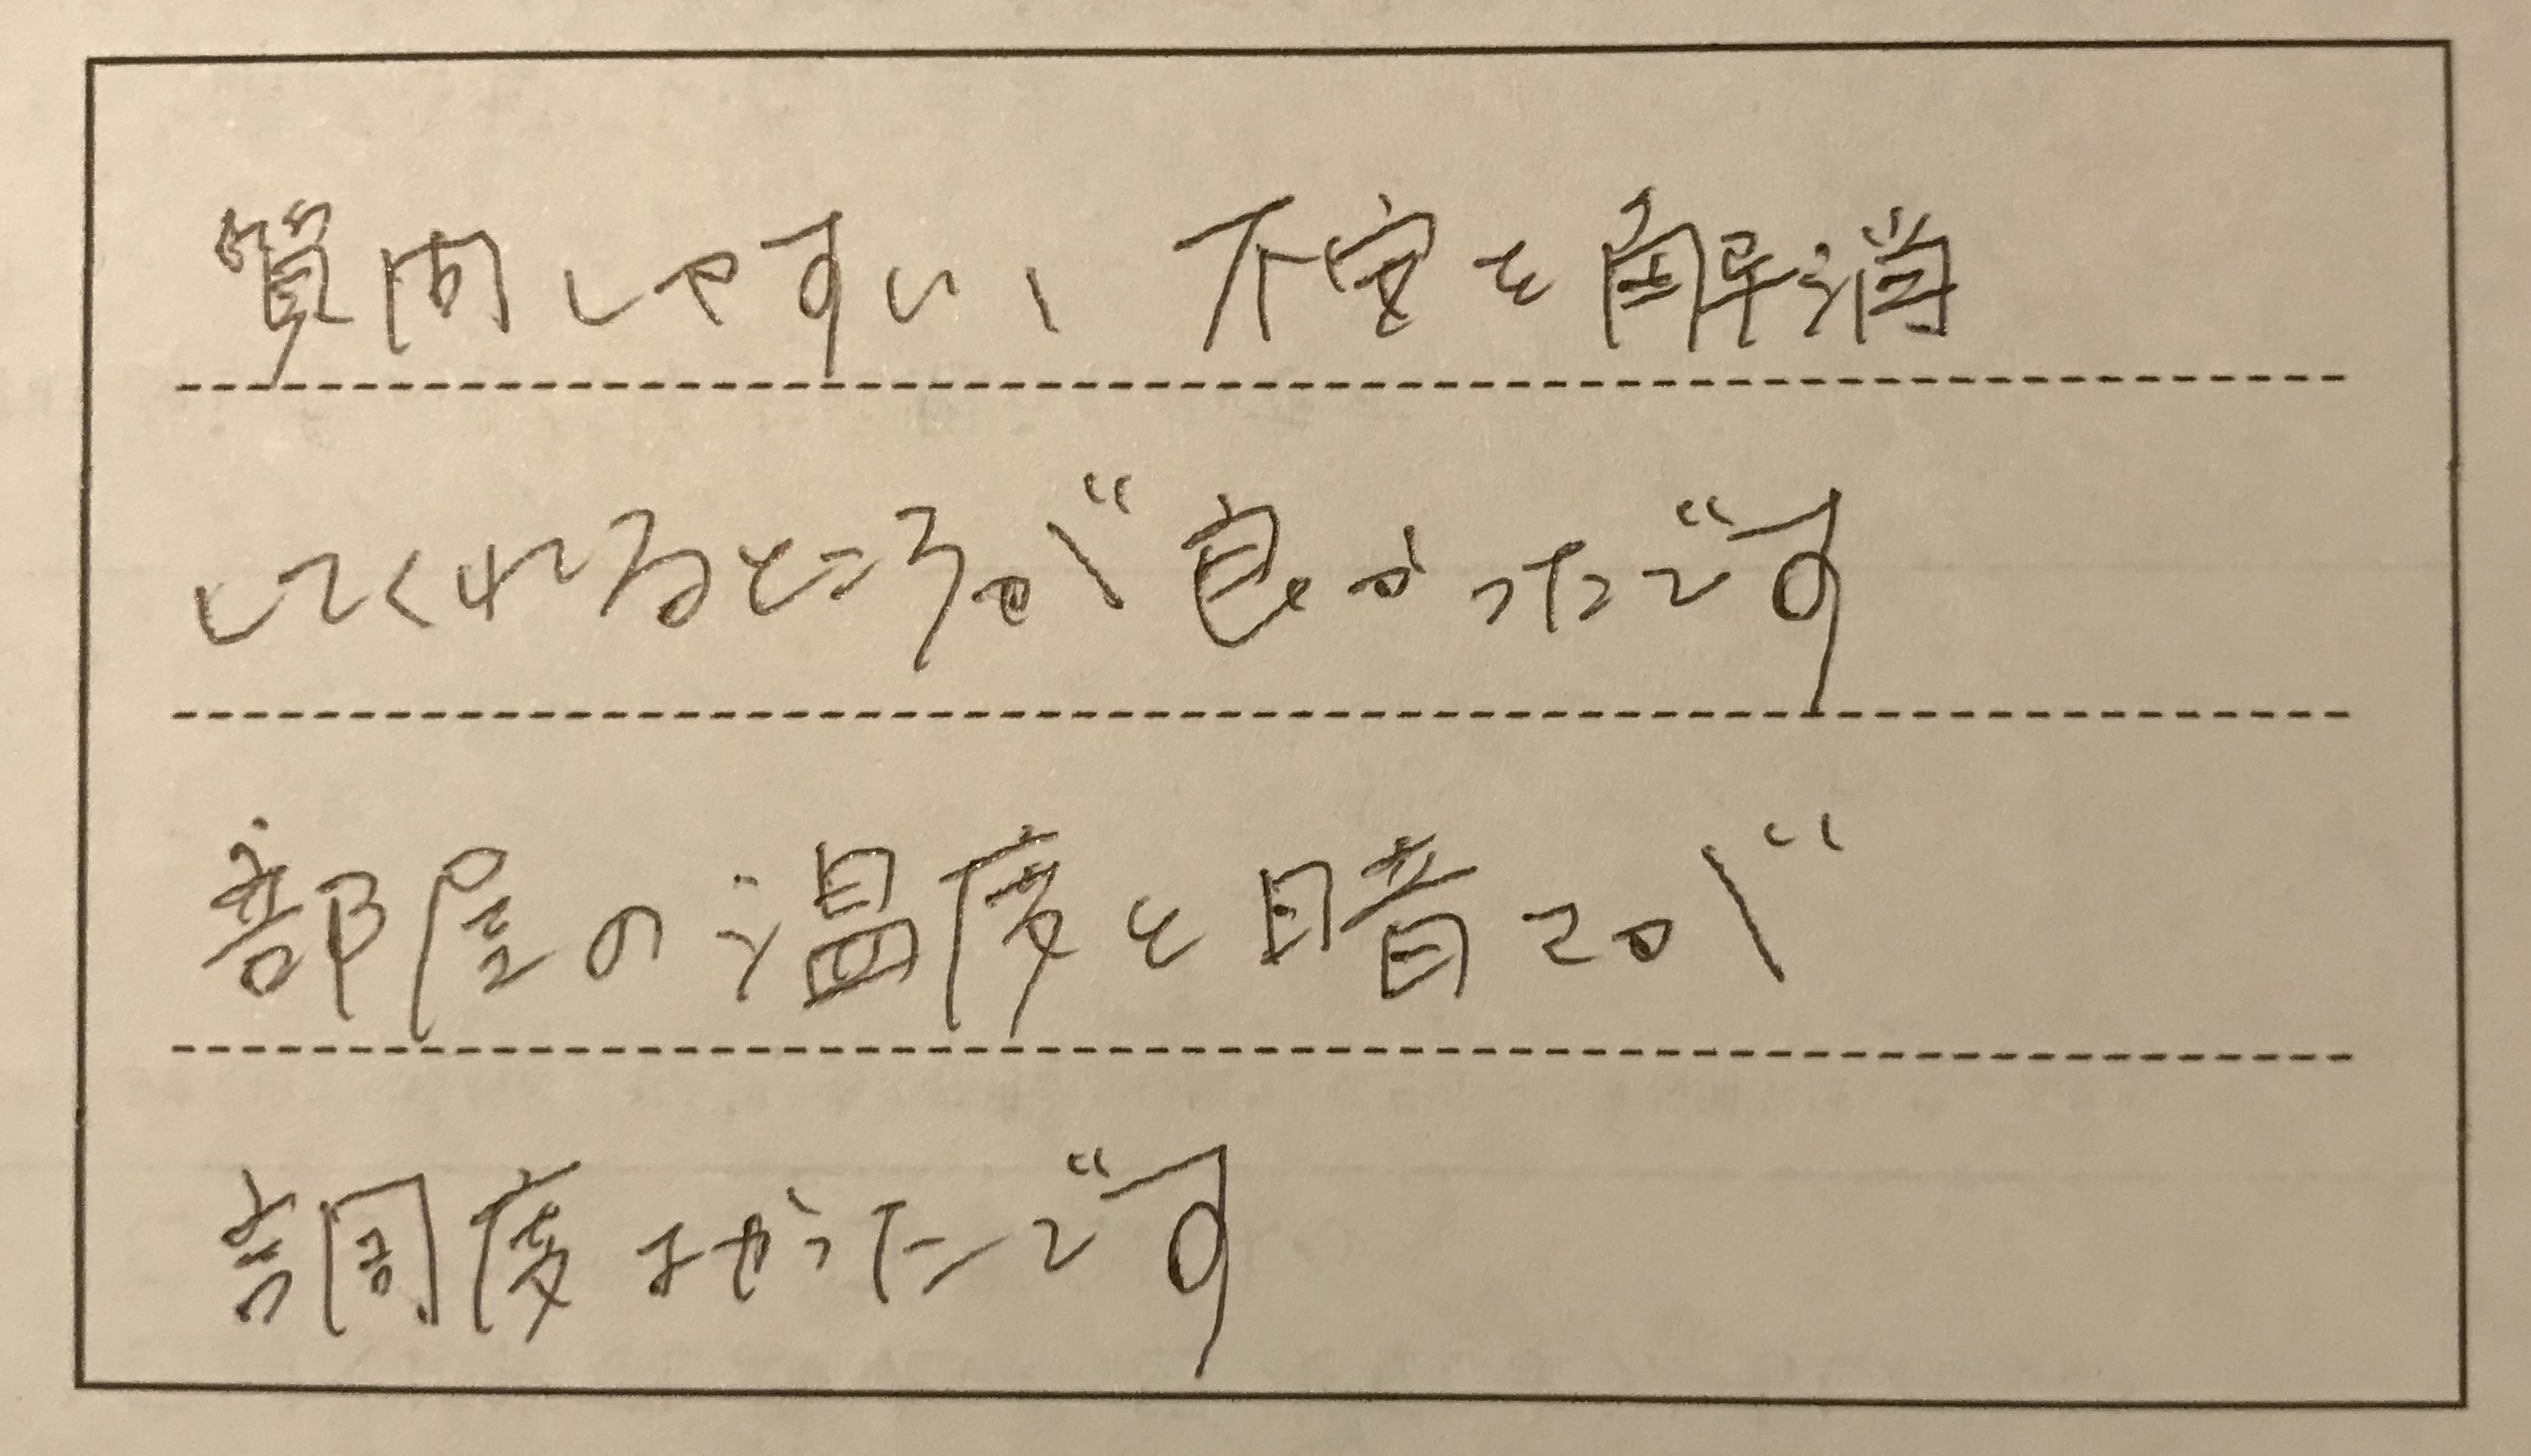 質問しやすい、不安を解消
してくれるところが良かったです
部屋の温度と暗さが
調度よかったです